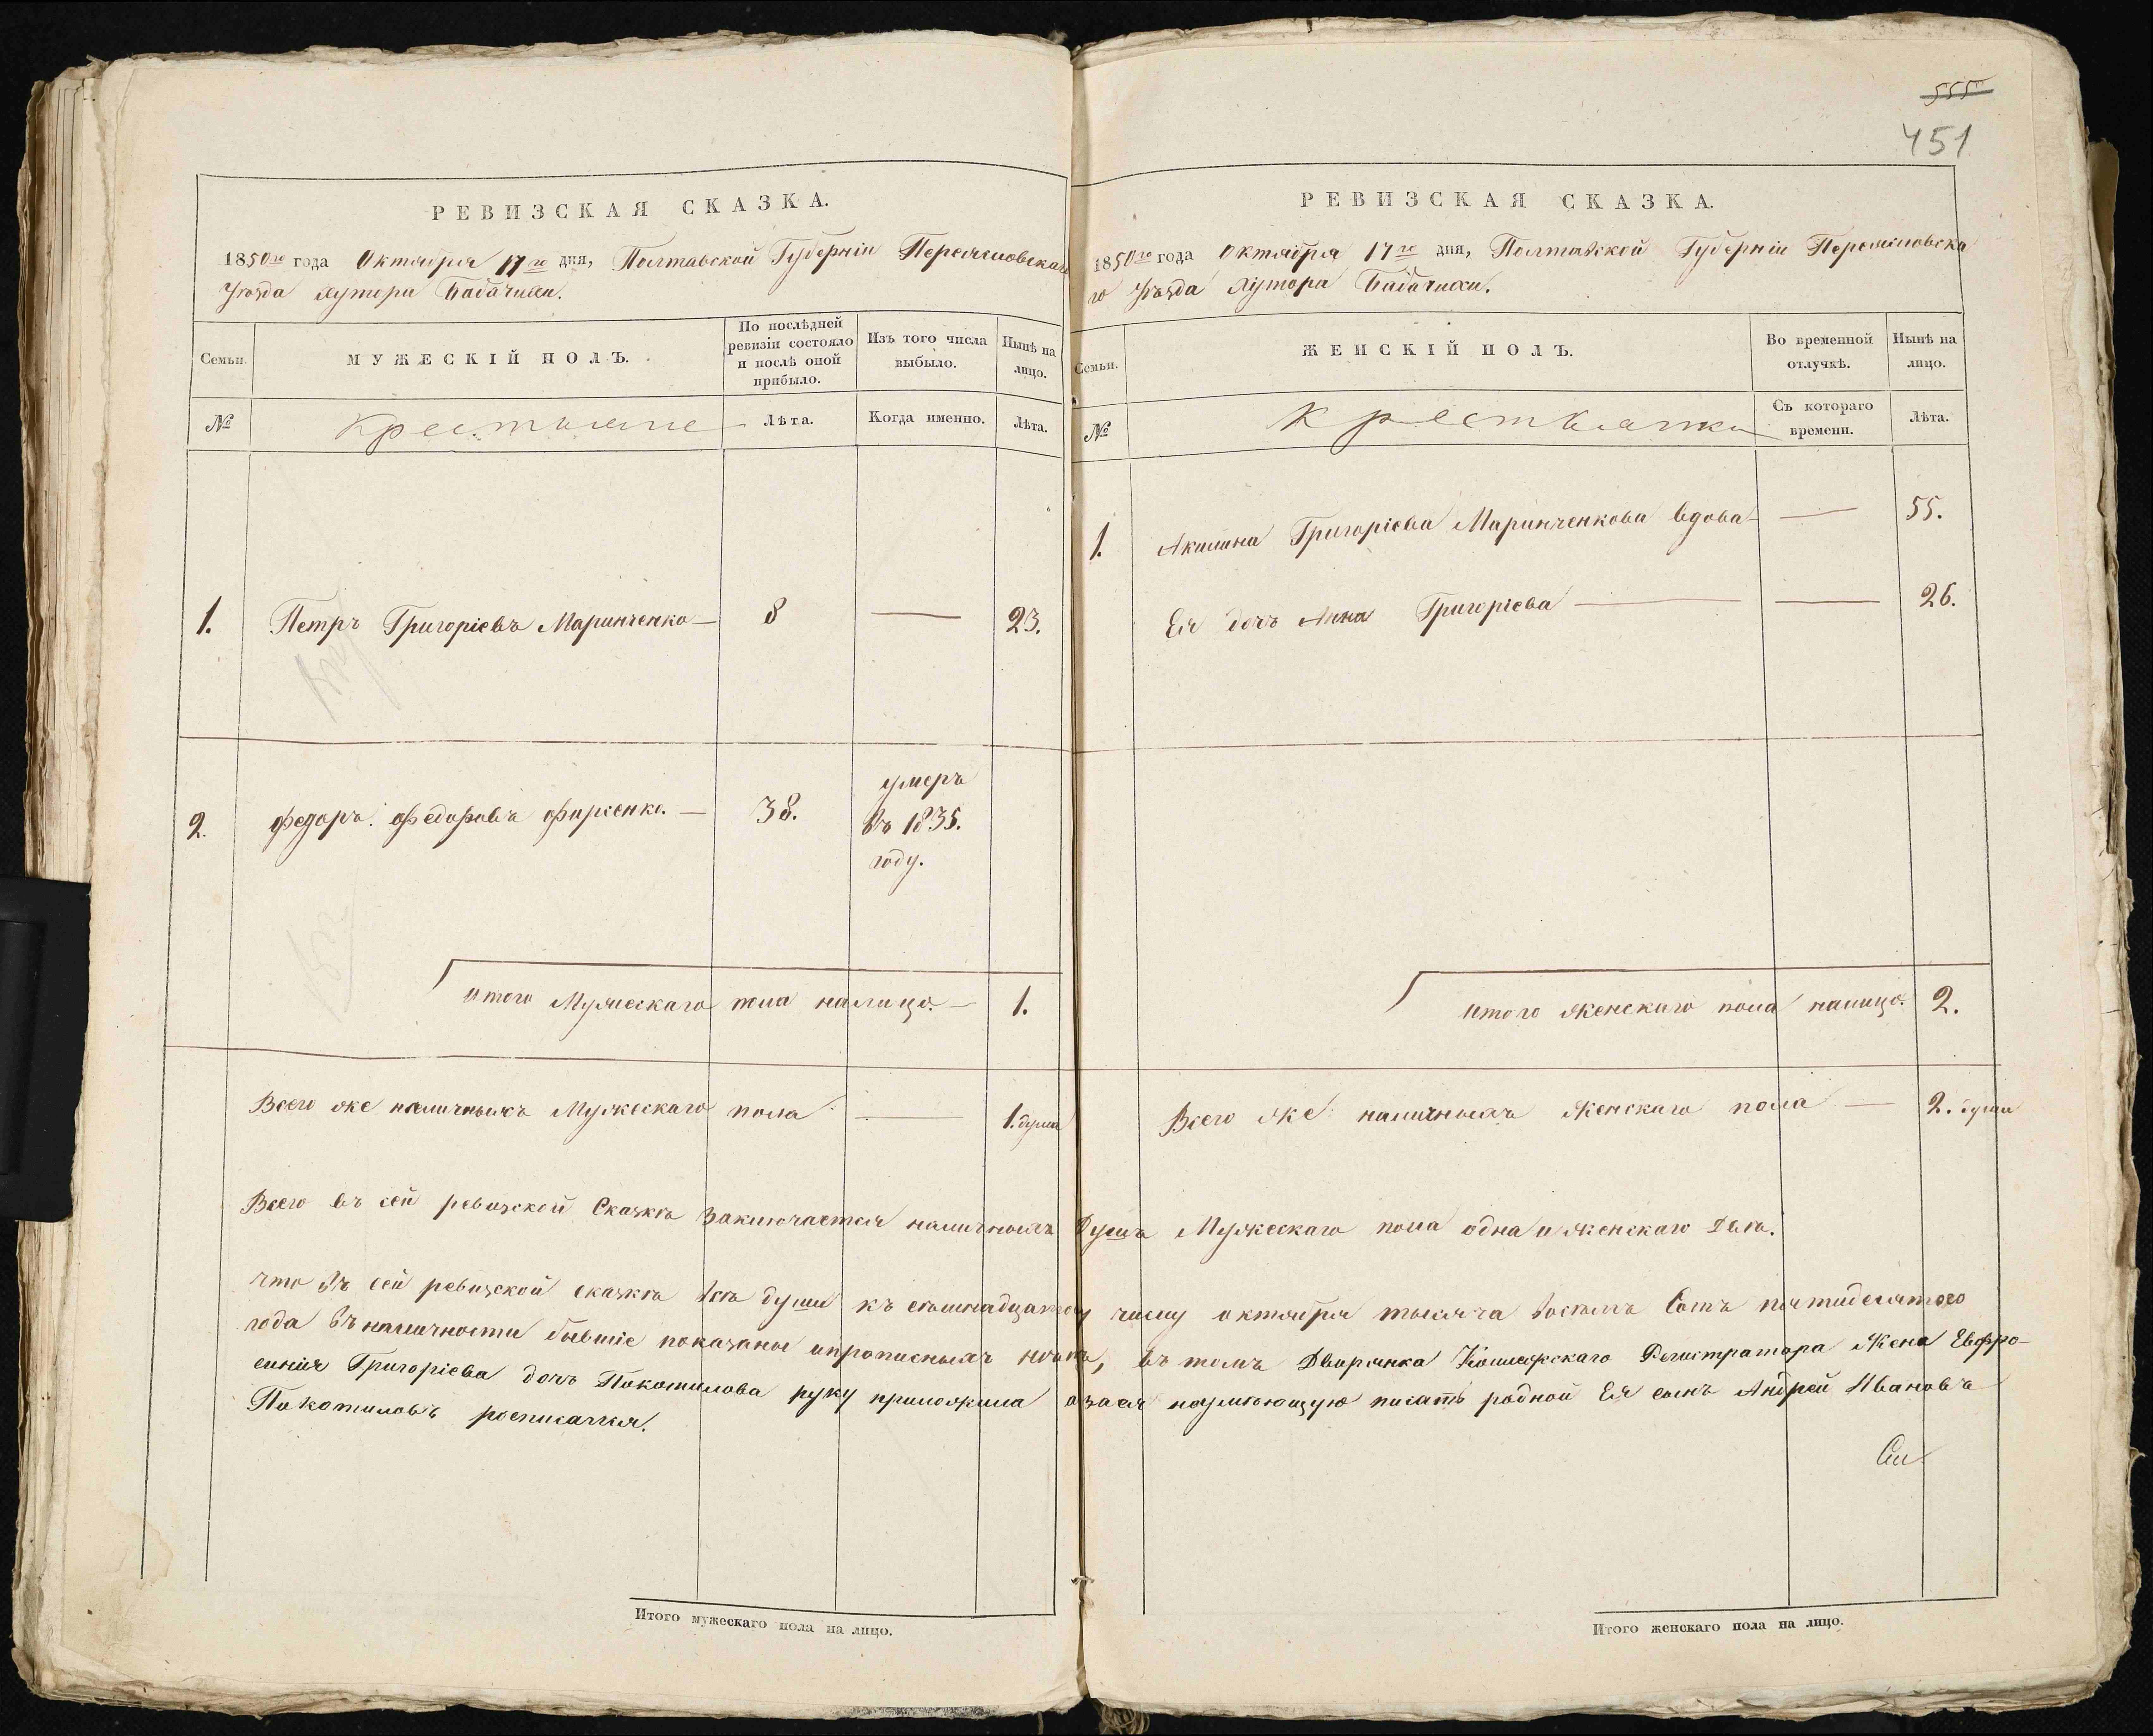 РЕВИЗСКАЯ СКАЗКА.
1850го года Октября 17го дня, Полтавской Губерніи Переясловскаго
Уѣзда хутора Бабачихи.
Семьи.
МУЖЕСКІЙ ПОЛЪ.
По послѣдней ревизіи состояло и послѣ оной прибыло.
Изъ того числа выбыло.
Нынѣ на лицо.
№
Крестьяне
Лѣта.
Когда именно.
Лѣта.
1. Петръ Григоріевъ Маринченко — 8 — 23.
2. Федоръ Федоровъ Фирсенко. — 38. умеръ
въ 1835.
году.
Итого Мужескаго пола налицо. — 1.
Всего же наличныхъ Мужескаго пола — 1. душа
555
451
РЕВИЗСКАЯ СКАЗКА.
1850го года Октября 17го дня, Полтавской Губерніи Переясловска
го Уѣзда Хутора Бабачихи.
Семьи.
ЖЕНСКІЙ ПОЛЪ.
Во временной отлучкѣ.
Нынѣ на лицо.
№
Крестьянки
Съ котораго времени.
Лѣта.
1. Акилина Григоріева Маринченкова вдова — — 55.
Ея дочь Анна Григоріева — — 26.
Итого Женскаго пола налицо. 2.
Всего же наличныхъ Женскаго пола — 2. души
Всего въ сей ревизской Сказкѣ заключается наличныхъ Душъ Мужескаго пола одна и женскаго двѣ.
что въ сей ревизской сказкѣ всѣ души къ семнадцатому числу октября тысяча восемь Сотъ пятидесятого
года въ наличности бывшіе показаны ипрописныхъ нѣтъ, въ томъ Дворянка Колежскаго Регистратора Жена Евфро-
синія Григоріева дочь Покотилова руку приложила азаея неумѣющую писать родной Ея сынъ Андрей Ивановъ
Покотиловъ росписался.
Итого мужескаго пола на лицо.
Итого женскаго пола на лицо.